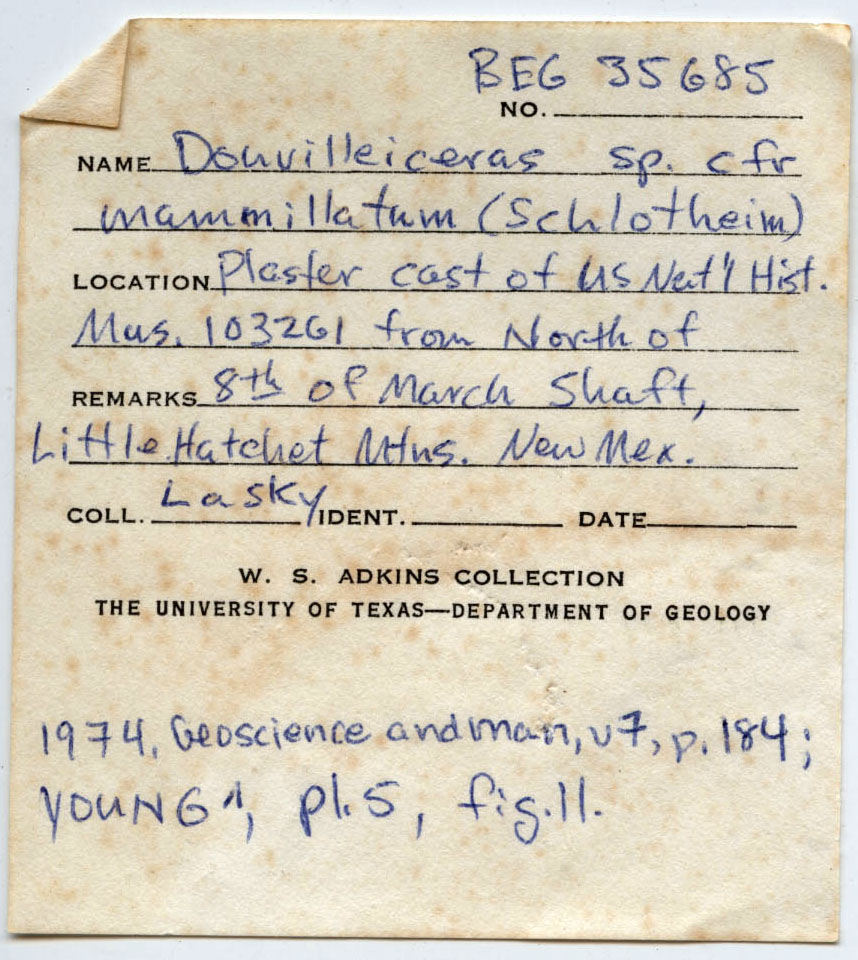 BEG 35685
NO.
NAME Douvilleiceras sp. cfr
mammillatum (Schlotheim)
LOCATION Plaster cast of US Nat'l Hist.
Mus. 103261 from North of
REMARKS 8th of March Shaft,
Little Hatchet Mtns. New Mex.
COLL. Lasky IDENT. DATE
W. S. ADKINS COLLECTION
THE UNIVERSITY OF TEXAS—DEPARTMENT OF GEOLOGY
1974, Geoscience and man, v7, p. 184;
YOUNG, pl. 5, fig. 11.